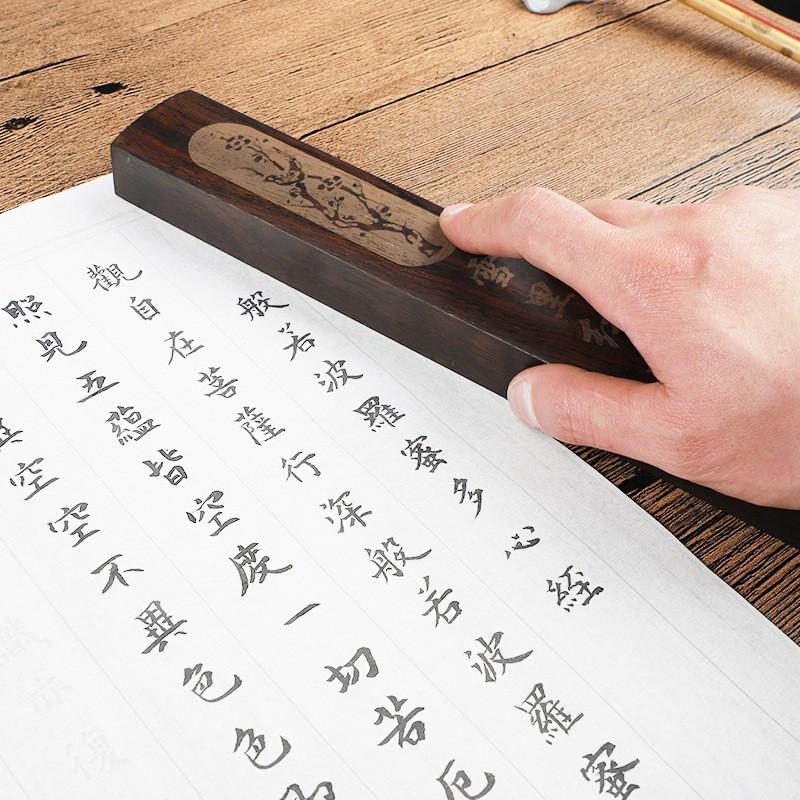 般若波羅蜜多心經
觀自在菩薩行深般若波羅蜜
照見五蘊皆空度一切苦厄
異空空不異色色
識亦復
雪里